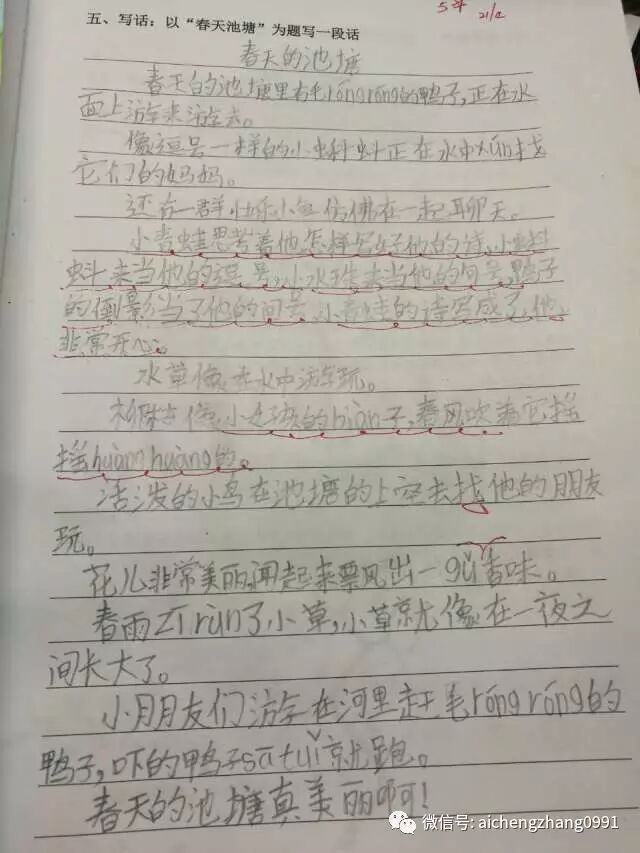 5半
21/4
五、写话：以“春天池塘”为题写一段话
春天的池塘
春天的池塘里有毛róngróng的鸭子,正在水
面上游来游去。
像逗号一样的小蝌蚪正在水中xún找
它们的妈妈。
还有一群快乐小鱼仿佛在一起聊天。
小青蛙思考着他怎样写好他的诗,小蝌
蚪来当他的逗号,小水珠来当他的句号,鸭子
的倒影当了他的问号,小青蛙的诗写成了,他
非常开心。
水草像在水中游玩。
柳树像小女孩的biàn子,春风吹着它摇
摇huànghuàng的。
活泼的小鸟在池塘的上空去找他的朋友
玩。
花儿非常美丽,闻起来飘出一gǔ香味。
春雨zīrùn了小草,小草就像在一夜之
间长大了。
小朋友们游在河里赶毛róngróng的
鸭子,吓的鸭子sātuǐ就跑。
春天的池塘真美丽啊!
微信号: aichengzhang0991